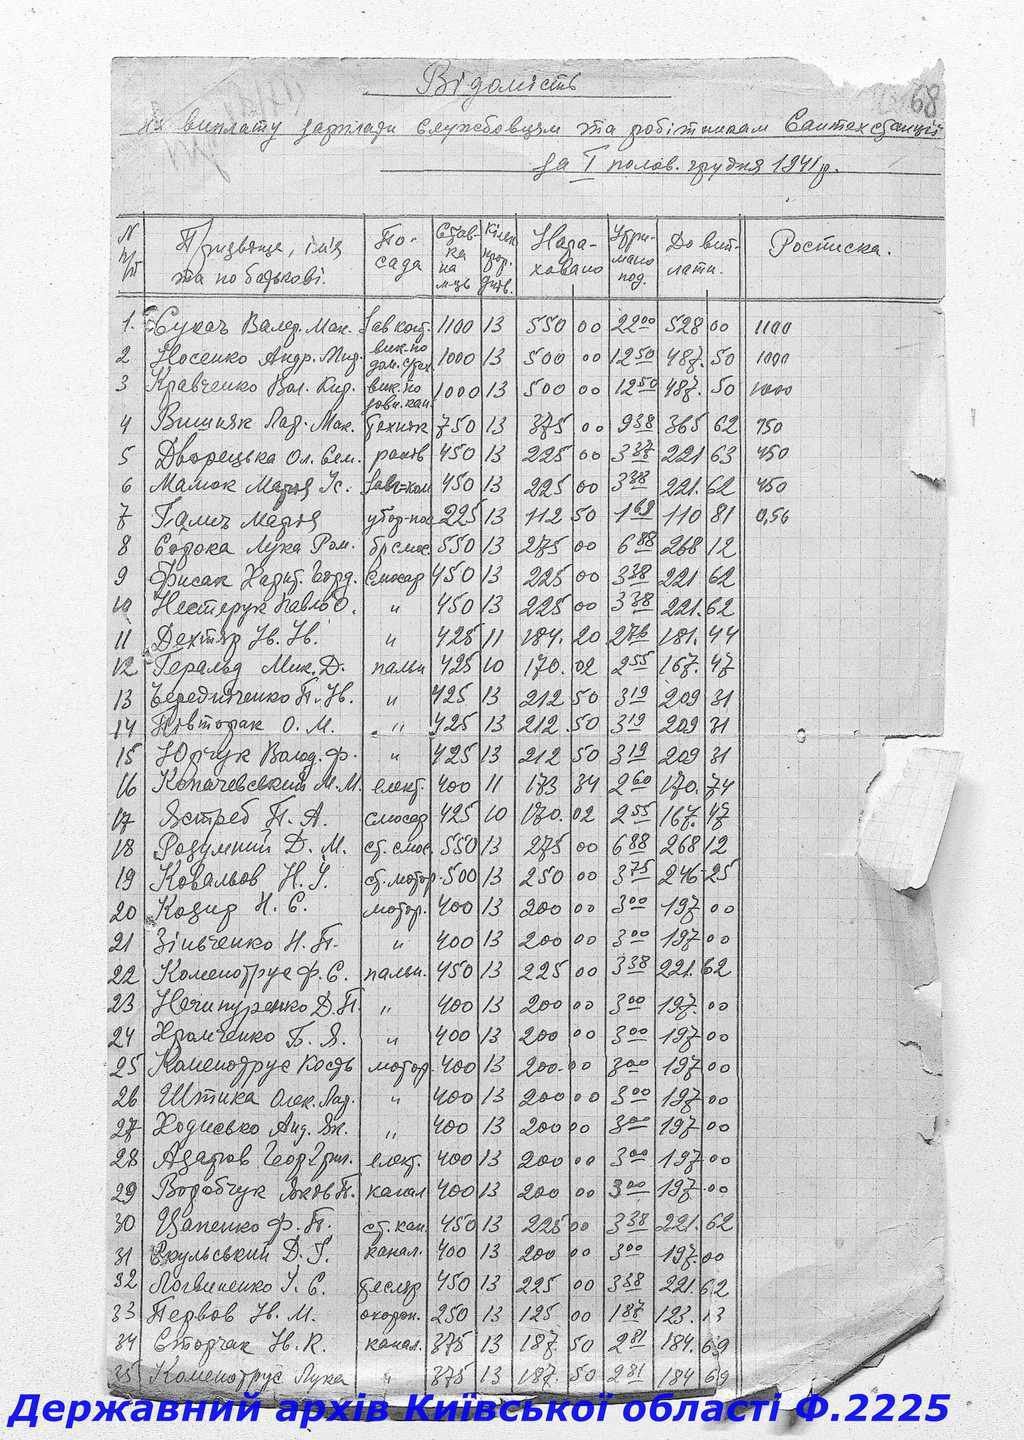 68
Відомість
на виплату зарплати службовцям та робітникам Сантехстанції
за I полов. грудня 1941 р.
N п/п Призвище, імʼя та по батькові. Посада Ставка на м-ць Кільк. прор. днів. Нараховано Утримано под. До виплати. Росписка.
1. Сукач Валер. Мак. Зав конт. 1100 13 550 00 22 00 528 00 1100
2 Носенко Андр. Мид. вик. по дом. 1000 13 500 00 12 50 487. 50 1000
3 Кравченко Вол. Кид. вик. по зовн. кан. 1000 13 500 00 12 50 487. 50 1000
4 Вишняк Лаз. Мак. технік 750 13 375 00 9 38 365 62 750
5 Дворецька Ол. Сем. 450 13 225 00 3 37 221 63 450
6 Мамок Марія Іс. 450 13 225 00 3 38 221. 62 450
7 Марія убор-ця 225 13 112 50 1 69 110 81 0,56
8 Сорока Лука Ром. бр слюс. 550 13 275 00 6 88 268 12
9 Фисак Харит. Горд. Слюсар 450 13 225 00 3 38 221 62
10 Нестерук Павло О. " 450 13 225 00 3 38 221. 62
11 Дехтяр Ів. Ів. " 425 11 184. 20 2 76 181. 44
12 Геральд Мик. Д. пальн 425 10 170. 02 2 55 167. 47
13 Чередниченко П. Ів. " 425 13 212 50 3 19 209 31
14 Півторак О. М. " 425 13 212. 50 3 19 209 31
15 Юрчук Волод. Ф. " 425 13 212 50 3 19 209 31
16 Копачевський М. М. елект. 400 11 173 34 2 60 170. 74
17 Ястреб П. А. слюсар 425 10 170. 02 2 55 167. 47
18 Розумний Д. М. ст. слюс. 550 13 275 00 6 88 268 12
19 Ковальов Н. У. ст. мотор. 500 13 250 00 3 75 246 25
20 Козир Н. С. мотор. 400 13 200 00 3 00 197 00
21 Зінченко Н. П. " 400 13 200 00 3 00 197 00
22 Каменотрус Ф. С. пальн. 450 13 225 00 3 38 221. 62
23 Нечипуренко Д. П. " 400 13 200 00 3 00 197. 00
24 Хромченко Б. Я. " 400 13 200 00 3 00 197. 00
25 Каменотрус Кость мотор. 400 13 200. 00 3 00 197 00
26 Штика Олек. Лаз. " 400 13 200 00 3 00 197 00
27 Ходисько Анд. Як. " 400 13 200 00 3 00 197 00
28 Азаров Геор. Григ. елект. 400 13 200 00 3 00 197 00
29 Воробчук Яков П. канал 400 13 200 00 3 00 197 00
30 Цапенко Ф. П. ст. кан. 450 13 225 00 3 38 221. 62
31 Якульський Д. Г. канал. 400 13 200 00 3 00 197. 00
32 Логвиненко І. С. тесляр 450 13 225 00 3 38 221. 62
33 Первов Ів. М. охорон. 250 13 125 00 1 87 123. 13
34 Сторчак Н. К. канал. 375 13 187. 50 2 81 184. 69
35 Каменотрус Лука " 375 13 187. 50 2 81 184 69
Державний архів Київської області Ф.2225